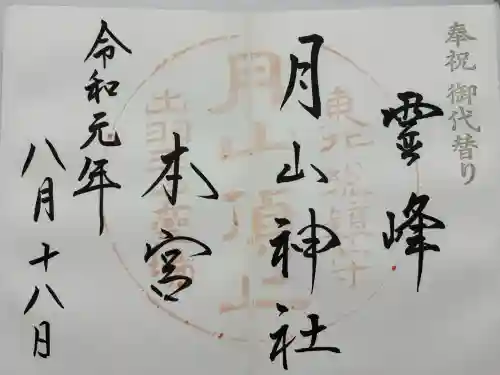 奉祝 御代替り
雲峰
月山神社
本宮
令和元年
八月十八日
月山頂上